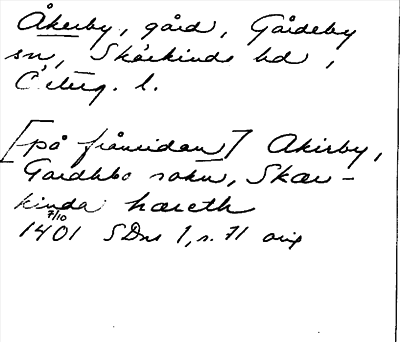 Åkerby, gård, Gårdeby
sn, Skärkinds hd,
Ö.
[på frånsidan] Akirby,
Gardhbo sokn, Skær-
kinda hæreth
7/10
1401 SDns 1, s. 71 orig